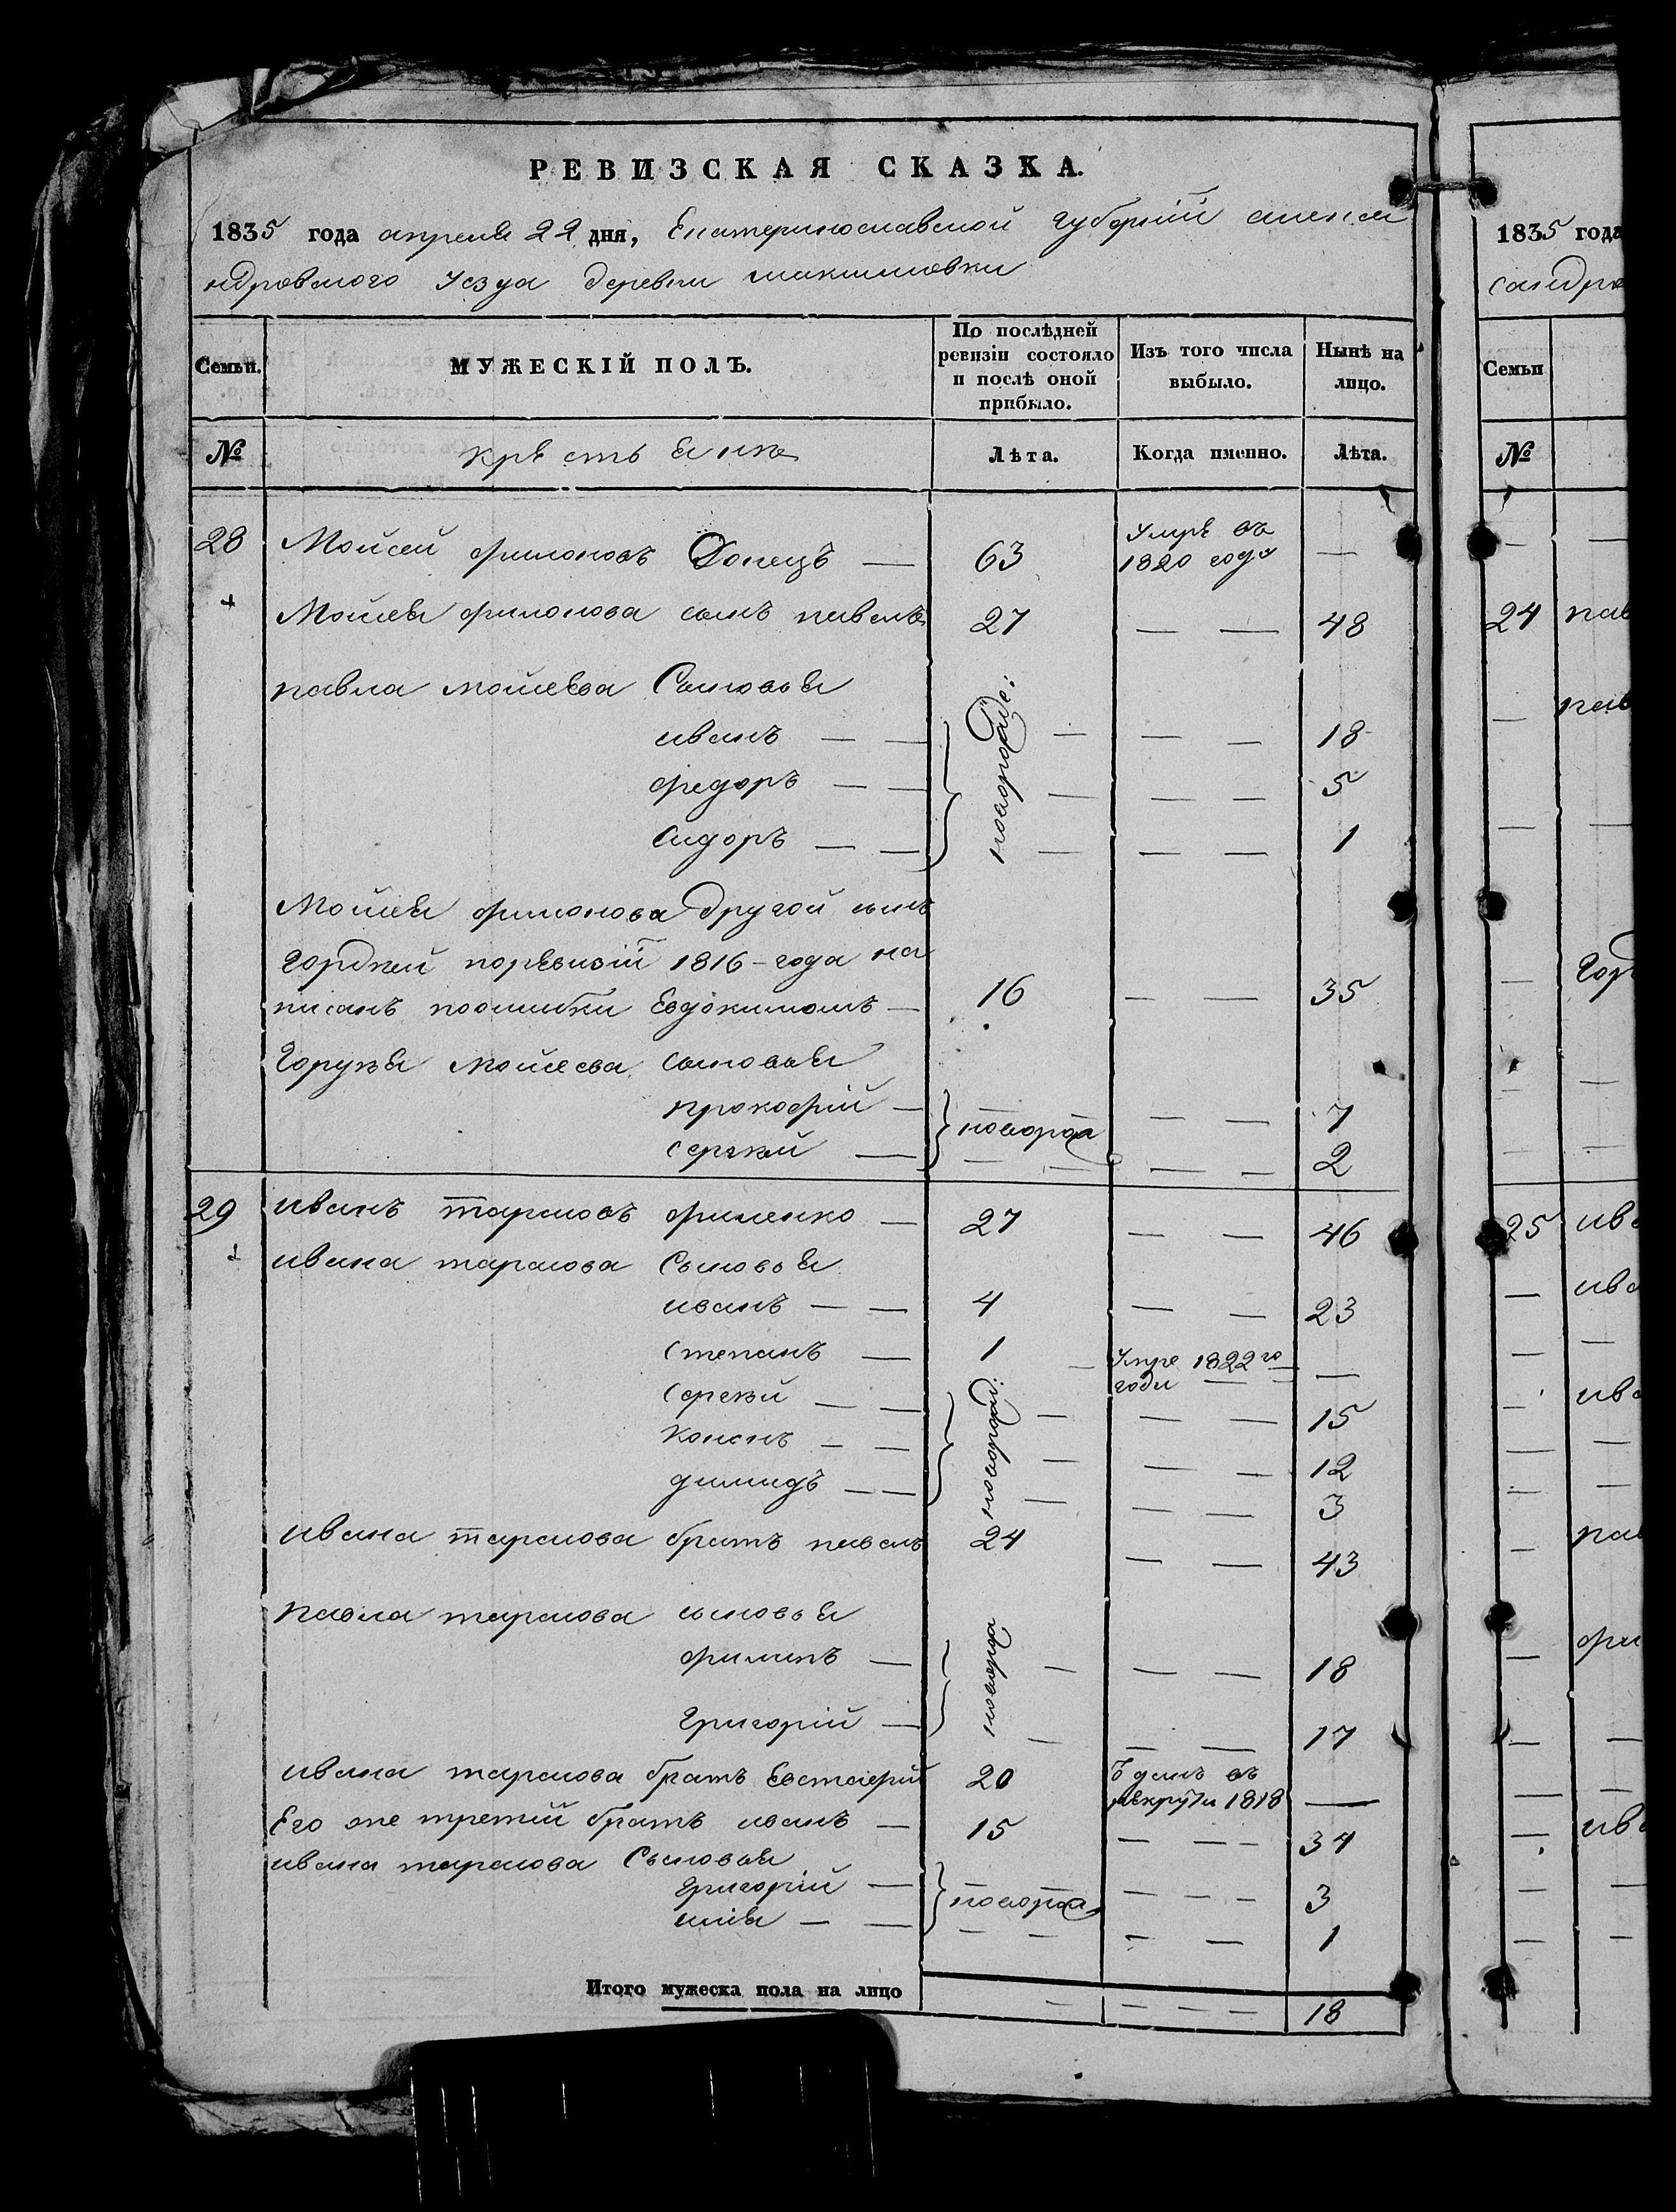 РЕВИЗСКАЯ СКАЗКА.
1835 года апреля 22 дня, Екатеринославской губернiи алекса
ндровского уезда деревни максимовки
Семьи. МУЖЕСКIЙ ПОЛЪ. По послѣдней ревизiи состояло и послѣ оной прибыло. Изъ того числа выбыло. Нынѣ на лицо.
№ Лѣта. Когда именно. Лѣта.
28 Мойсей филоновъ Донецъ — 63 Умрѣ въ 1820 году —
Мойсѣя филонова сынъ павелъ 27 — — 48
павла мойсѣева Сыновья
иванъ — — новорожде: — — — 18
федоръ — — — — — 5
Сидоръ — — — — — 1
Мойсѣя филонова другой сынъ
Гордѣй поревизiй 1816-года на
писанъ поошибки Евдокимомъ — 16 — — 35
Гордѣя Мойсеева сыновья
прокофiй — — — 7
сергѣй — — — 2
29 иванъ тарасовъ филенко — 27 — — 46
ивана тарасова Сыновья
иванъ — — 4 — — 23
Степанъ — 1 — Умре 1822го года — —
Сергѣй — — — — — 15
Кононъ — — — — — 12
димидъ — — — — — 3
ивана тарасова братъ павелъ 24 — — 43
павла тарасова сыновья
филипъ — — — — 18
Григорiй — — — — 17
ивана тарасова братъ Евстафiй 20 въ рекруты 1818 —
Его же третiй братъ иванъ — 15 — — — 34
ивана тарасова Сыновья
Григорiй — — — — 3
илiя — — — — 1
Итого мужеска пола на лицо 18
1835 года
сандро
Семьи
№
24 пав
пав
Гор
25 ива
ива
ива
пав
фи
ива